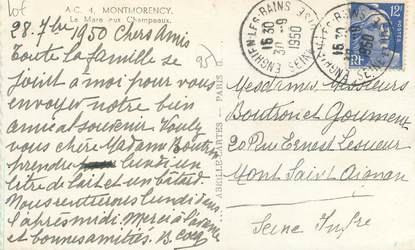 Lot
A-C. 4. MONTMORENCY.
La Mare aux Champeaux.
28. 7bre 1950 Chers Amis
Toute la famille se
joint à moi pour vous
envoyer notre bien
amical souvenir. Voulez
vous chère Madame
prendre lundi un
litre de lait et un bâtard.
Nous rentrerons lundi dans
l'après midi. Merci à l'avance
et bonnes amitiés. B.
95
ABEILLE-CARTES - PARIS
ENGHIEN-LES-BAINS
16 30
30-9
1950
SEINE ET OISE
ENGHIEN-LES-BAINS
16 30
1950
12F
RF
Mesdames, Messieurs
Boutron et Goument
20 Rue Ernest Lesueur
Mont Saint Aignan
Seine Infre